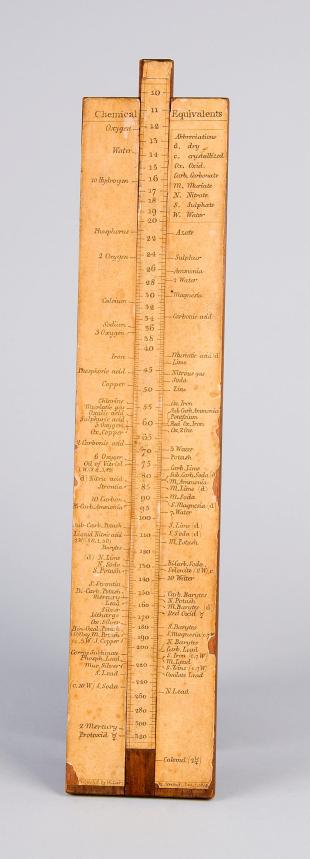 Chemical Equivalents
Oxygen
Water
10 Hydrogen
Phosphorus
2 Oxygen
Calcium
Sodium
3 Oxygen
Iron
Phosphoric acid
Copper
Chlorine
Muriatic gas
Oxalic acid
Sulphuric acid
5 Oxygen
Ox. Copper
2 Carbonic acid
6 Oxygen
Oil of Vitriol
(d) Nitric acid
Strontia
10 Carbon
Bi-Carb. Ammonia
Sub-Carb. Potash
Liquid Nitric acid
Barytes
(d) N. Lime
N. Soda
S. Potash
S. Strontia
Bi-Carb. Potash
Mercury
Lead
Silver
Litharge
Ox. Silver
Phosph. Lead
Mur. Silver
S. Lead
(c. 10 W) S. Soda
2 Mercury
Protoxid
10
11
12
13
14
15
16
17
18
19
20
22
24
26
28
30
32
34
36
38
40
45
50
55
60
65
70
75
80
85
90
95
100
110
120
130
140
150
160
170
180
190
200
220
240
260
280
300
320
Abbreviations
d. dry
c. crystallized
Ox. Oxid
Carb. Carbonate
M. Muriate
N. Nitrate
S. Sulphate
W. Water
Azote
Sulphur
Ammonia
2 Water
Magnesia
Carbonic acid
Muriatic acid (d)
Lime
Nitrous gas
Soda
Zinc
Ox. Iron
Sub Carb. Ammonia
Potassium
Red Ox. Iron
Ox. Zinc
5 Water
Potash
Carb. Lime
Sub. Carb. Soda (d)
M. Ammonia
M. Lime (d)
M. Soda
S. Magnesia (d)
7 Water
S. Lime (d)
S. Soda (d)
M. Potash
Bi-Carb. Soda
10 Water
Carb. Barytes
N. Potash
M. Barytes (d)
Red Oxid
S. Barytes
S. Magnesia c. 7 W
N. Barytes
Carb. Lead
S. Iron (c. 7 W)
M. Lead
Oxalate Lead
N. Lead
Calomel